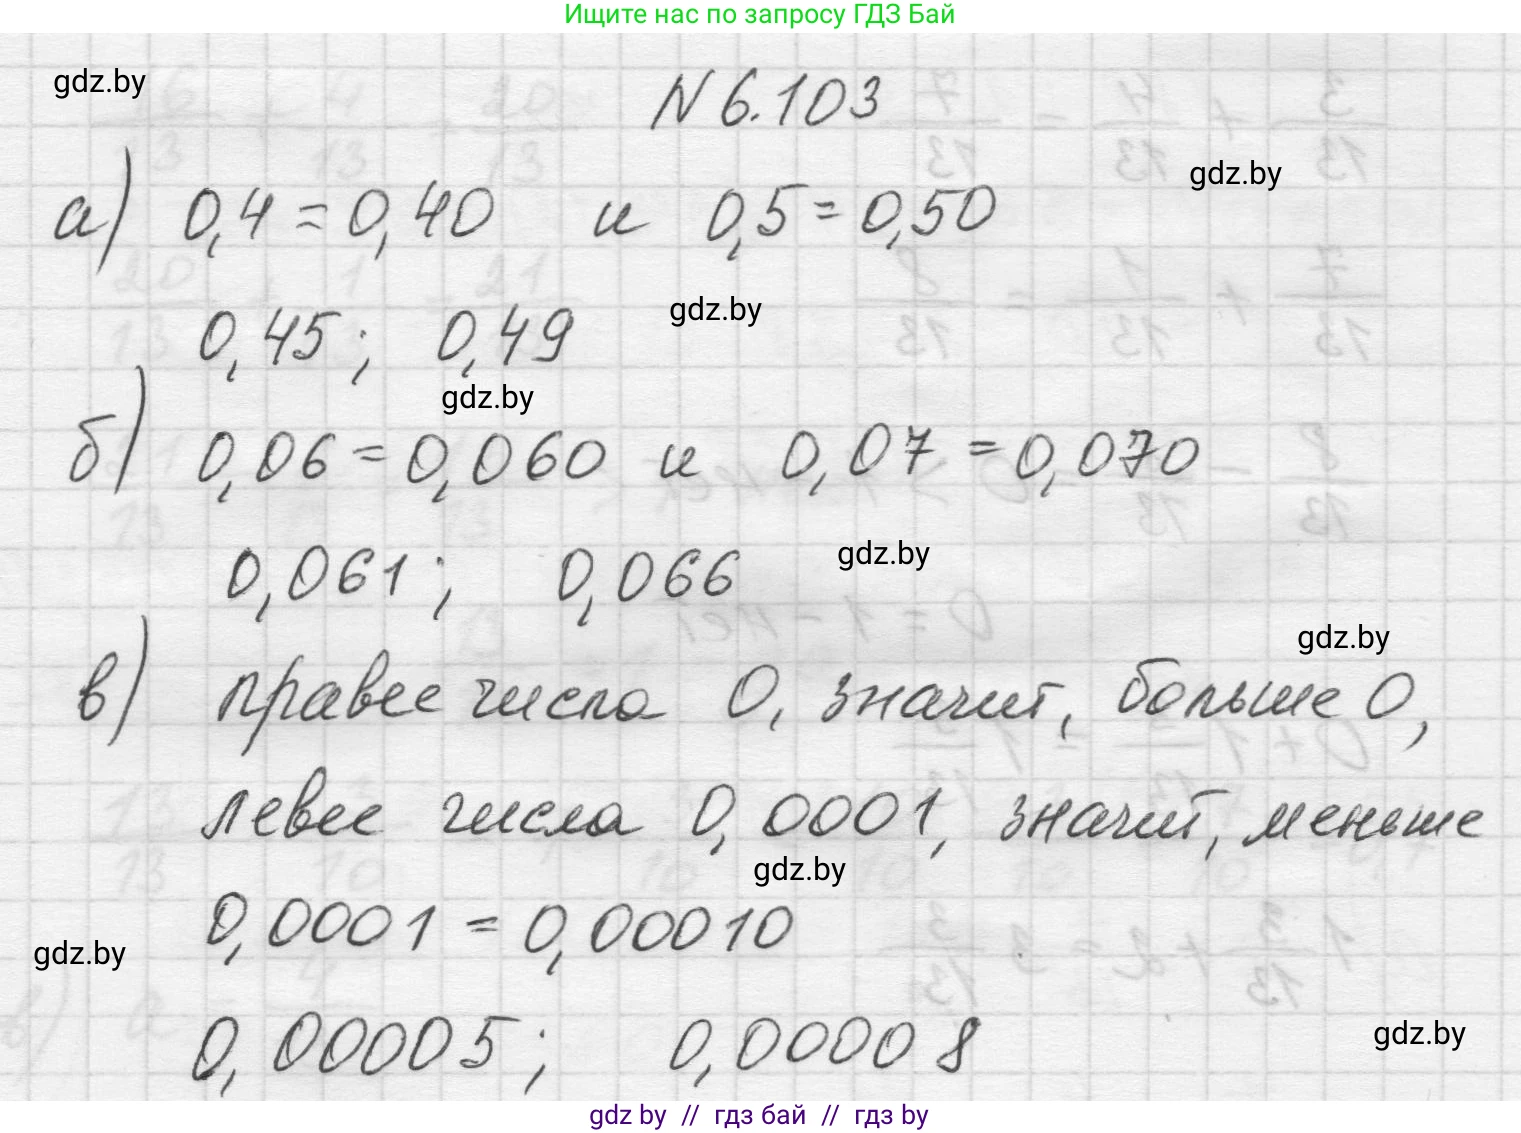 Ищите нас по запросу ГДЗ Бай
gdz.by
N 6.103
gdz.by
а) 0,4 = 0,40 и 0,5 = 0,50
gdz.by
0,45; 0,49
gdz.by
б) 0,06 = 0,060 и 0,07 = 0,070
0,061; 0,066
gdz.by
gdz.by
в) правее числа 0, значит, больше 0,
левее числа 0,0001, значит, меньше
gdz.by
0,0001 = 0,00010
gdz.by
0,00005; 0,00008
gdz.by
gdz by // гдз бай // гдз by